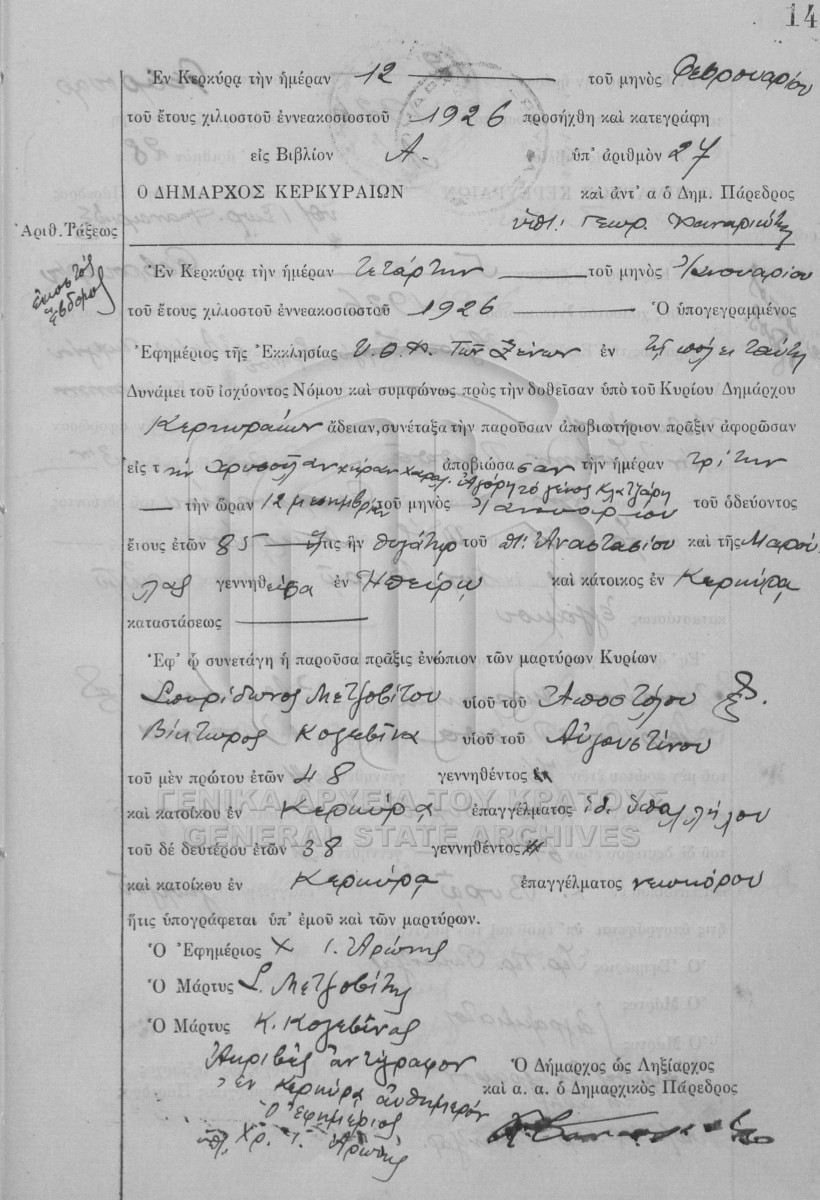 14
Ἐν Κερκύρᾳ τὴν ἡμέραν 12 τοῦ μηνὸς Φεβρουαρίου
τοῦ ἔτους χιλιοστοῦ ἐννεακοσιοστοῦ 1926 προσήχθη καὶ κατεγράφη
εἰς Βιβλίον Α. ὑπ' ἀριθμὸν 27
Ο ΔΗΜΑΡΧΟΣ ΚΕΡΚΥΡΑΙΩΝ καὶ ἀντ' α ὁ Δημ. Πάρεδρος
Γεωρ.
Ἀριθ. Τάξεως
εἰκοστὸς
ἕβδομος
Ἐν Κερκύρᾳ τὴν ἡμέραν τετάρτην τοῦ μηνὸς Ἰανουαρίου
τοῦ ἔτους χιλιοστοῦ ἐννεακοσιοστοῦ 1926 Ὁ ὑπογεγραμμένος
Ἐφημέριος τῆς Ἐκκλησίας Υ.Θ. τῶν Ξένων ἐν τῇ πόλει ταύτῃ
Δυνάμει τοῦ ἰσχύοντος Νόμου καὶ συμφώνως πρὸς τὴν δοθεῖσαν ὑπὸ τοῦ Κυρίου Δημάρχου
Κερκυραίων ἄδειαν, συνέταξα τὴν παροῦσαν ἀποβιωτήριον πρᾶξιν ἀφορῶσαν
εἰς τὴν χήραν Χαραλ. Ἀγόρη τὸ γένος Κλατζάρη ἀποβιώσασαν τὴν ἡμέραν τρίτην
τὴν ὥραν 12 μεσημβρίαν τοῦ μηνὸς Ἰανουαρίου τοῦ ὁδεύοντος
ἔτους ἐτῶν 85 ἥτις ἦν θυγάτηρ τοῦ π: Ἀναστασίου καὶ τῆς Μαρού
λας γεννηθεῖσα ἐν Ἠπείρῳ καὶ κάτοικος ἐν Κερκύρᾳ
καταστάσεως
Ἐφ' ᾧ συνετάγη ἡ παροῦσα πρᾶξις ἐνώπιον τῶν μαρτύρων Κυρίων
Σπυρίδωνος Μετζοβίτου υἱοῦ τοῦ Ἀποστόλου
Βίκτωρος Κολεβίνα υἱοῦ τοῦ Αὐγουστίνου
τοῦ μὲν πρώτου ἐτῶν 48 γεννηθέντος
καὶ κατοίκου ἐν Κερκύρᾳ ἐπαγγέλματος ἰδ. ὑπαλλήλου
τοῦ δὲ δευτέρου ἐτῶν 38 γεννηθέντος
καὶ κατοίκου ἐν Κερκύρᾳ ἐπαγγέλματος νεωκόρου
ἥτις ὑπογράφεται ὑπ' ἐμοῦ καὶ τῶν μαρτύρων.
Ὁ Ἐφημέριος Χ Ι. Ἀρώνης
Ὁ Μάρτυς Σ. Μετζοβίτης
Ὁ Μάρτυς Κ. Κολεβίνας
Ἀκριβὲς ἀντίγραφον
ἐν Κερκύρᾳ αὐθημερόν
Ὁ Ἐφημέριος
Χρ. Ι. Ἀρώνης
Ὁ Δήμαρχος ὡς Ληξίαρχος
καὶ α. α. ὁ Δημαρχικὸς Πάρεδρος
ΓΕΝΙΚΑ ΑΡΧΕΙΑ ΤΟΥ ΚΡΑΤΟΥΣ
GENERAL STATE ARCHIVES